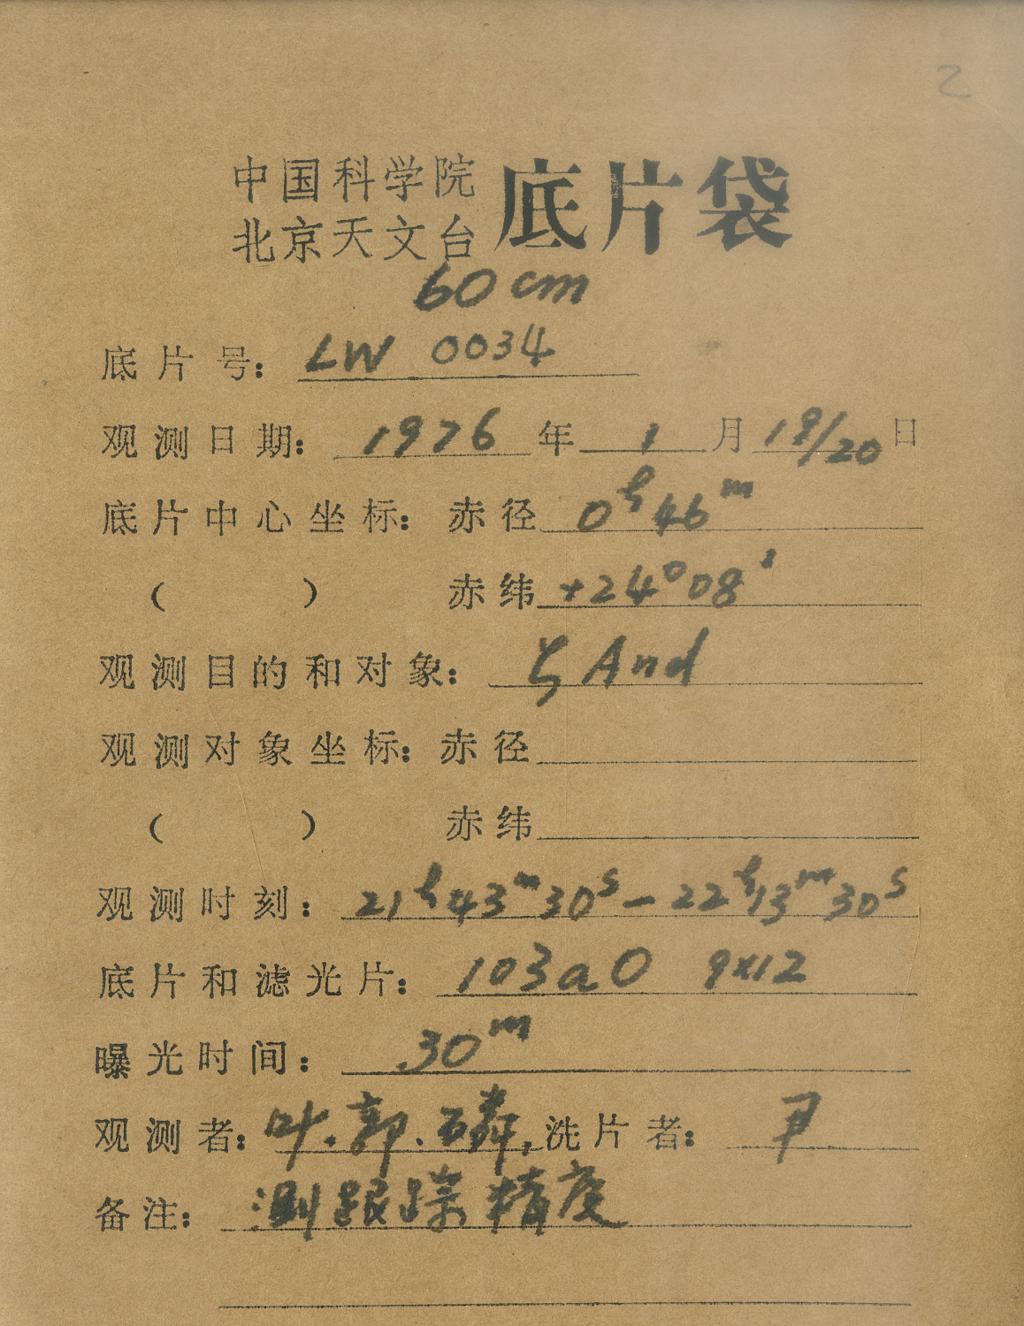 2
中国科学院
北京天文台 底片袋
60cm
底片号: LW 0034
观测日期: 1976年 1月 19/20日
底片中心坐标: 赤径 0ʰ46ᵐ
( ) 赤纬 +24°08′
观测目的和对象: ζ And
观测对象坐标: 赤径
( ) 赤纬
观测时刻: 21ʰ43ᵐ30ˢ—22ʰ13ᵐ30ˢ
底片和滤光片: 103aO 9x12
曝光时间: 30ᵐ
观测者: 叶.郭.磷, 洗片者: 尹
备注: 测跟踪精度